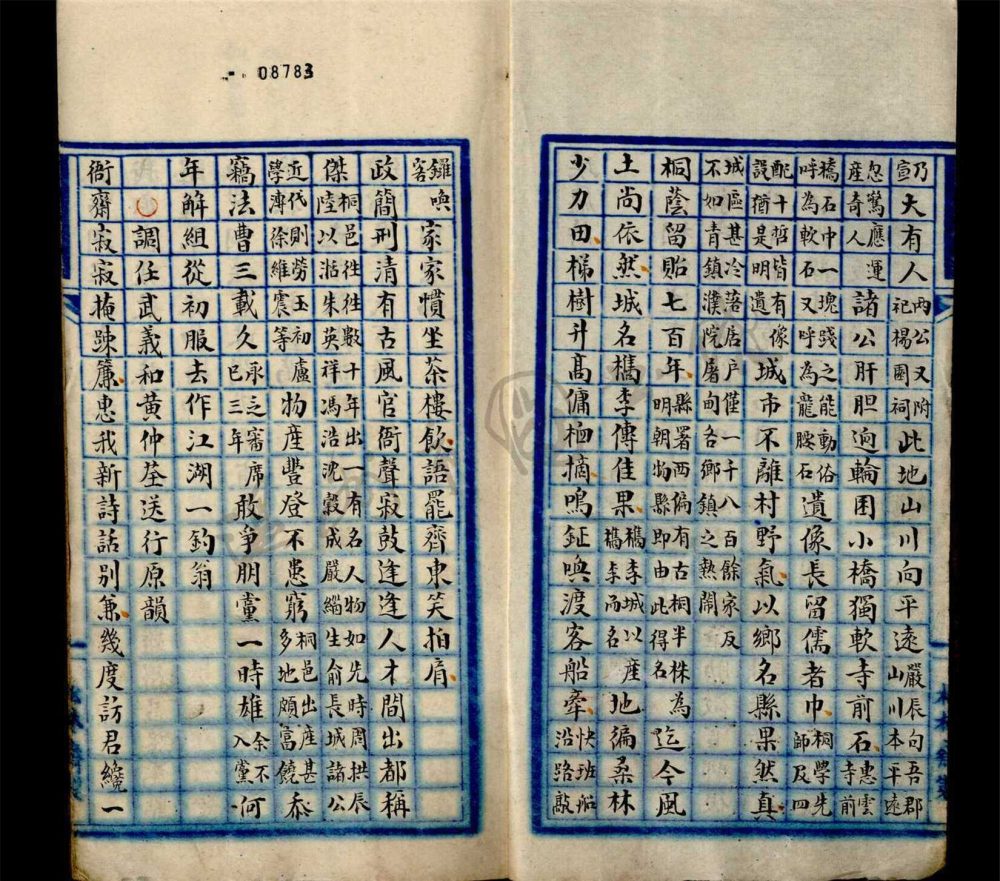 08783
乃宣大有人兩公又附祀楊園祠此地山川向平遠嚴辰句吾郡山川本平遠
忽驚應運產奇人諸公肝胆迥輪囷小橋獨軟寺前石惠雲寺前
橋石巾一塊踐之能動俗呼為軟石又呼為龍腰石遺像長留儒者巾桐學先師及四
配十哲皆有像設猶是明遺城市不離村野氣以鄉名縣果然真
城區甚冷落居戶僅一千八百餘家反不如青鎮濮院屠甸各鄉鎮之熱鬧
桐蔭留貽七百年縣署西偏有古桐半株為明朝物縣即由此得名迄今風
土尚依然城名檇李傳佳果檇李城以產檇李而名地徧桑林
少力田梯樹升高傭桕摘鳴鉦喚渡客船牽快班船沿路敲
鑼喚客家家慣坐茶樓飲語罷齊東笑拍肩
政簡刑清有古風官衙聲寂鼓逢逢人才間出都稱
傑桐邑徃徃數十年出一有名人物如先時周拱辰陸以湉朱英祥馮浩沈糓成嚴緇生俞長城諸公
近代則勞玉初盧學溥徐維震等物產豐登不患窮桐邑出產甚多地頗富饒忝
竊法曹三載久承乏審席巳三年敢爭朋黨一時雄余不入黨何
年解組從初服去作江湖一釣翁
調任武義和黃仲荃送行原韻
衙齋寂寂掩踈簾惠我新詩話別兼幾度訪君纔一